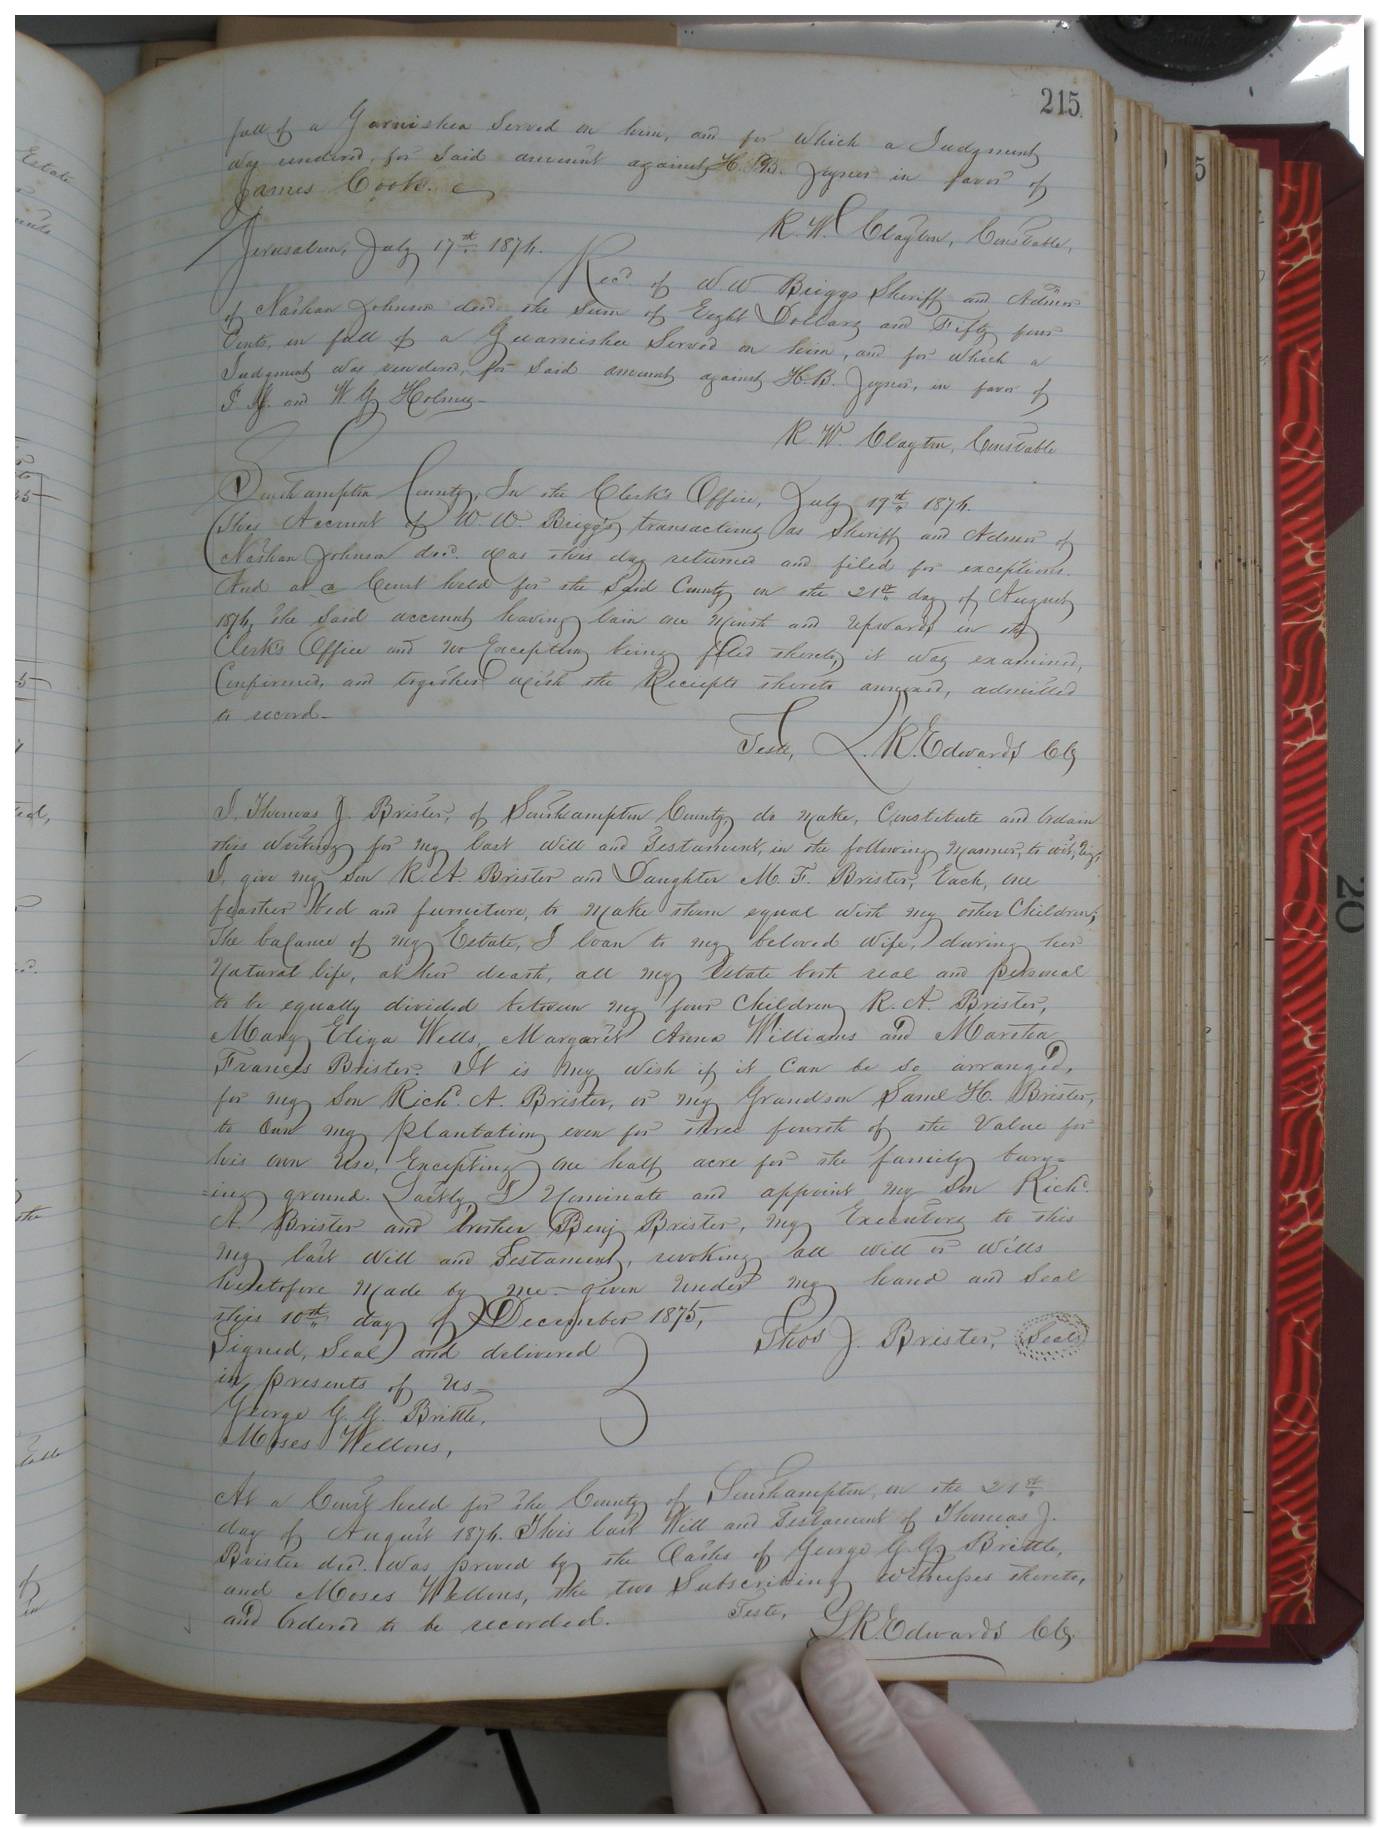 215
full of a Garnishea Served on him, and for which a Judgment
was rendered, for Said amount against H. B. Joyner in favor of
James Cook.
R. W. Clayton, Constable,
Jerusalem, July 17th 1876.
Recd of W W Briggs Sheriff and Admor
of Nathan Johnson decd. the Sum of Eight Dollars and Fifty four
Cents, in full of a Guarnishea Served on him, and for which a
Judgment was rendered, for Said amount against H. B. Joyner, in favor of
and W. G. Holmes
R. W. Clayton, Constable
Southampton County, In the Clerk's Office, July 19th 1876.
This Account of W. W. Briggs transactions as Sheriff and Admor of
Nathan Johnson decd. was this day returned and filed for exceptions.
And at a Court held for the Said County on the 21st day of August
1876, the Said account having lain one Month and Upwards in the
Clerk's Office and no Exceptions being filed thereto, it was examined,
Confirmed, and together with the Receipts thereto annexed, admitted
to record.
Teste, L. R. Edwards Clk
I, Thomas J. Brister, of Southampton County, do make, Constitute and Ordain
this Writing for my last Will and Testament, in the following Manner, to wit, Viz,
I, give my Son R. A. Brister and Daughter M. F. Brister, Each, one
feather Bed and furniture, to make them equal with my other Children,
The balance of my Estate, I loan to my beloved Wife, during her
Natural life, at her death, all my Estate both real and personal
to be equally divided between my four Children R. A. Brister,
Mary Eliza Wells, Margaret Anna Williams and Martha
Frances Brister. It is my wish if it Can be so arranged,
for my Son Richd. A. Brister, or my Grandson Saml H. Brister,
to Own my plantation even for three fourth of the Value for
his own Use, Excepting One half acre for the family bury=
=ing ground. Lastly I Nominate and appoint my Son Richd.
A. Brister and brother Benj Brister, my Executors to this
my last Will and Testament, revoking all will or Wills
heretofore Made by me - given Under my hand and Seal
this 10th day of December 1875,
Thos J. Brister, Seal
Signed, Seal and delivered
in presents of Us
George G. G. Brittle,
Moses Wellons,
At a Court held for the County of Southampton, on the 21st
day of August 1876. This last Will and Testament of Thomas J.
Brister decd. was proved by the Oaths of George G. G. Brittle,
and Moses Wellons, the two Subscribing witnesses thereto,
and Ordered to be recorded.
Teste, L. R. Edwards Clk